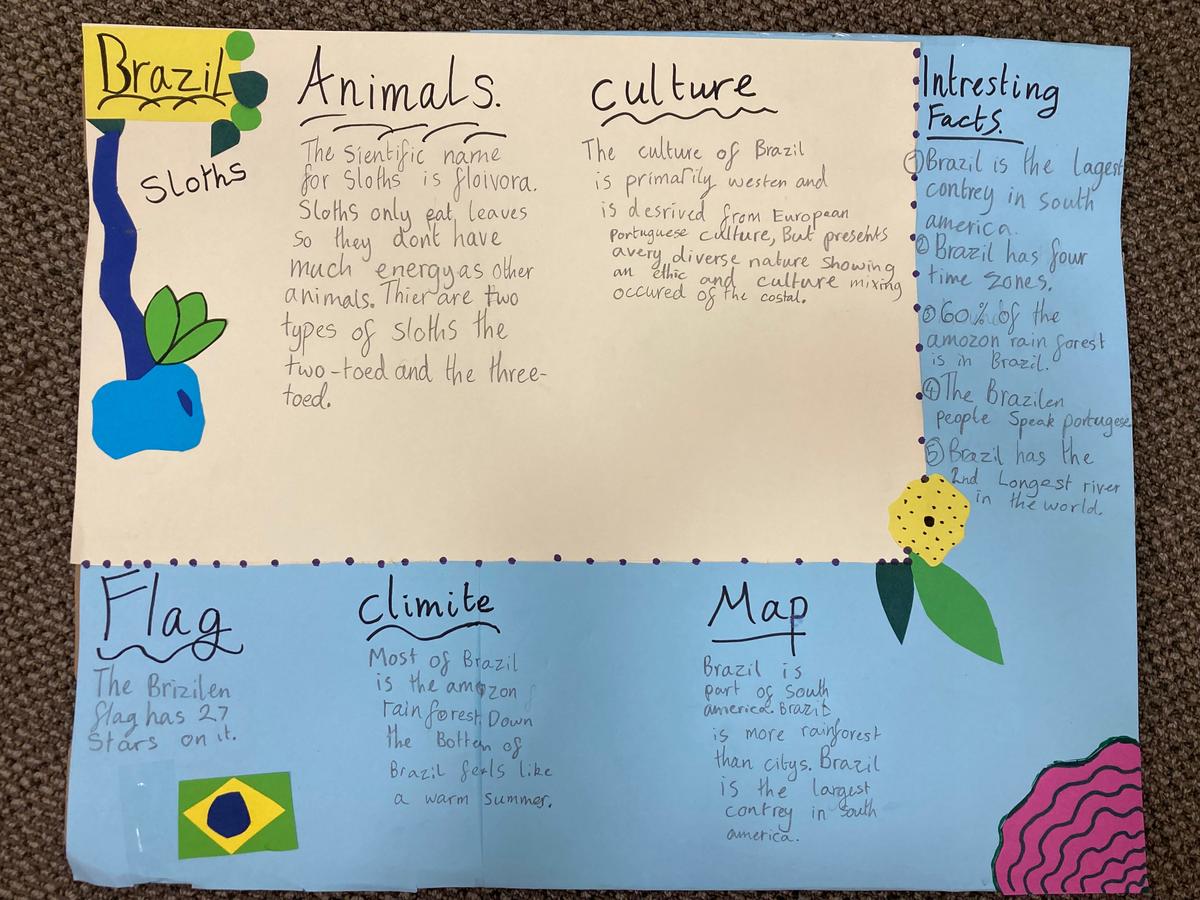 Brazil
Sloths
Animals.
The Sientific name
for Sloths is floivora.
Sloths only eat leaves
so they dont have
much energy as other
animals. Thier are two
types of sloths the
two-toed and the three-
toed.
culture
The culture of Brazil
is primarily westen and
is desrived from European
Portuguese culture, But presents
a very diverse nature showing
an ethic and culture mixing
occured of the costal.
Intresting
Facts.
① Brazil is the lagest
contrey in south
america.
② Brazil has four
time zones.
③ 60% of the
amozon rain forest
is in Brazil.
④ The Brazilen
people Speak portugese
⑤ Brazil has the
2nd Longest river
in the world.
Flag
The Brizilen
flag has 27
Stars on it.
climite
Most of Brazil
is the amazon
rain forest Down
the Botten of
Brazil feels like
a warm summer.
Map
Brazil is
part of South
america. Brazil
is more rainforest
than citys. Brazil
is the largest
contrey in south
america.